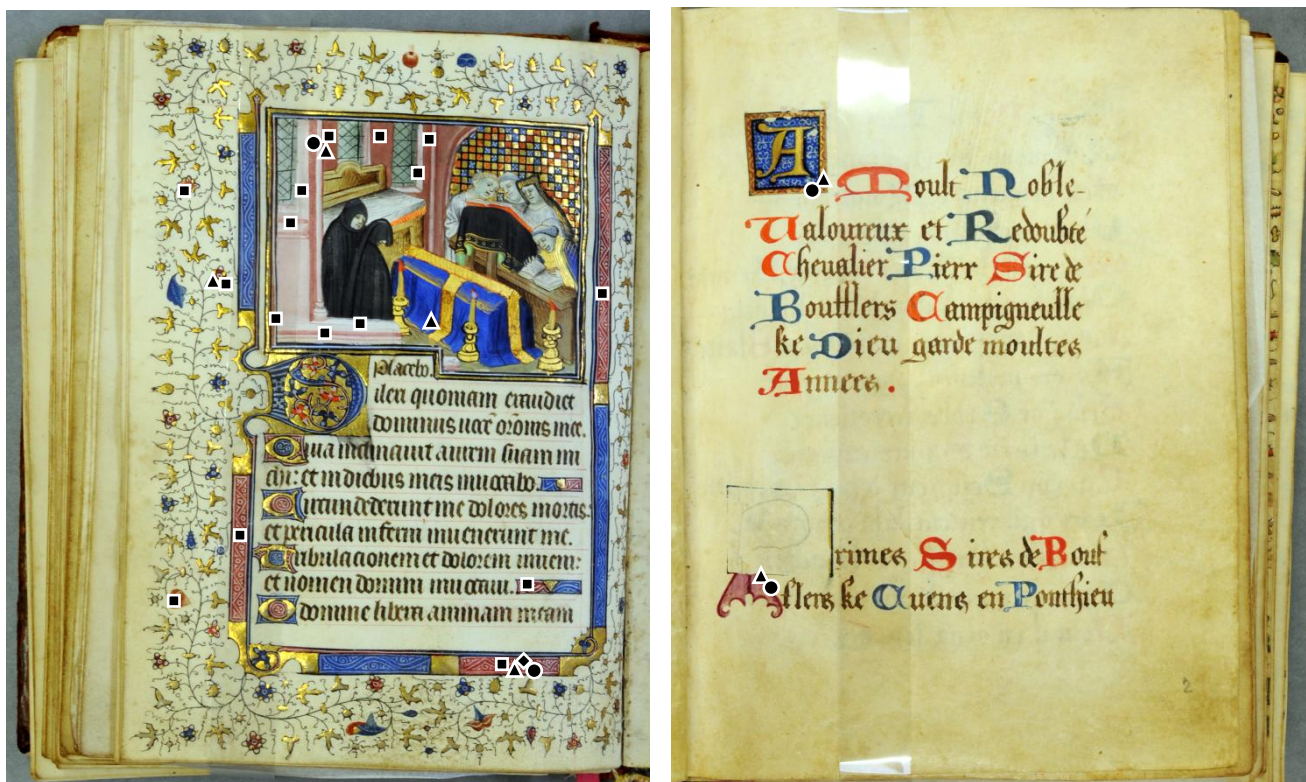 Placebo.
ilexi quoniam exaudiet
dominus uocē orōnis mee.
Quia inclinauit aurem suam mi
chi: et in diebus meis inuocabo.
Circumdederunt me dolores mortis:
et pericula inferni inuenerunt me.
Tribulacionem et dolorem inueni:
et nomen domini inuocaui.
O domine libera animam meam
A Moult Noble
Ualoureux et Redoubte
Cheualier Pierr Sire de
Boufflers Campigneulle
ke Dieu garde moultes
Annees.
rimes Sires de Bouf
flers ke Cuens en Ponthieu
2